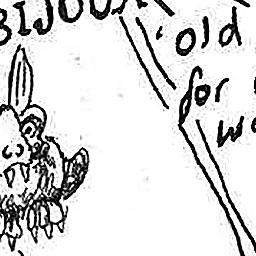 BIJOUX
'old
for